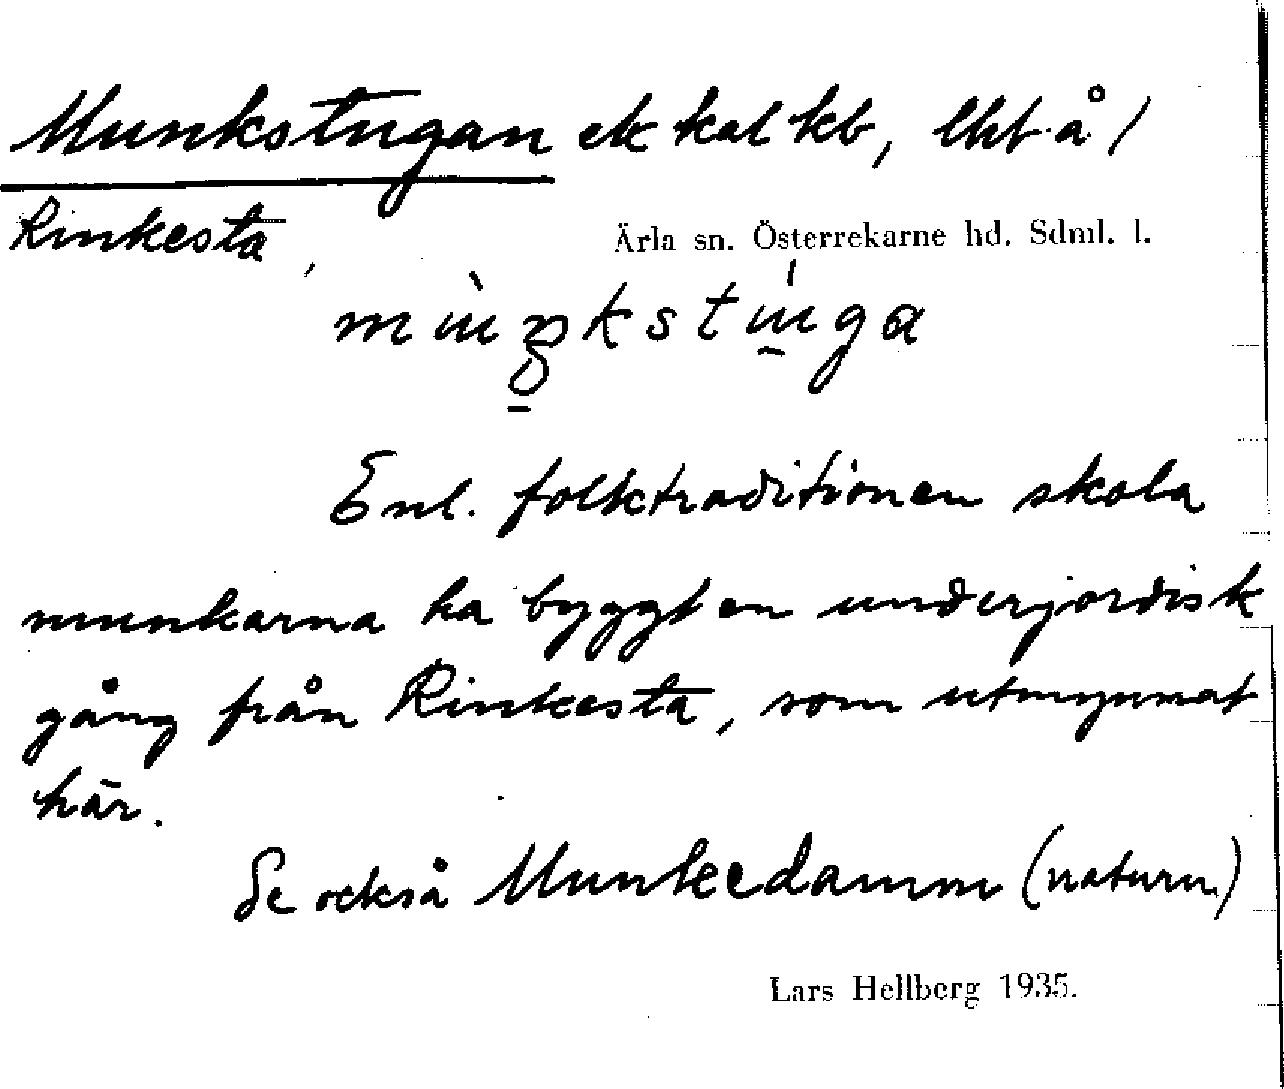 Munkstugan ek kal kb, lht å 1
Rinkesta,
Ärla sn. Österrekarne hd. Sdml. l.
Enl. folktraditionen skola
munkarna ha byggt en underjordisk
gång från Rinkesta, som utmynnat
här.
Se också Munkedamm (naturn.)
Lars Hellberg 1935.